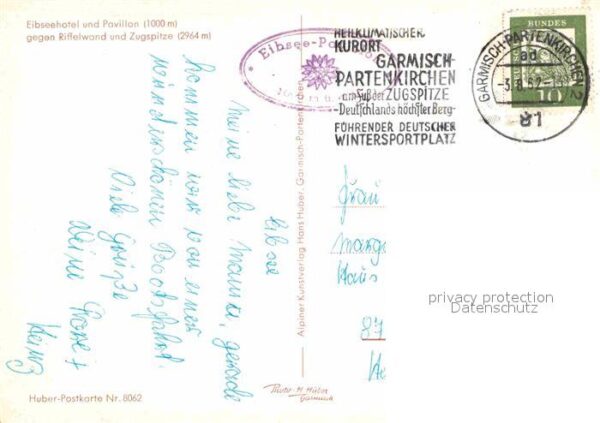 Eibseehotel und Pavillon (1000 m)
gegen Riffelwand und Zugspitze (2964 m)
Eibsee
Meine liebe Mama, gerade
kommen wir von einer
wunderschönen Bootsfahrt.
Viele Grüße
Deine
Heinz
Huber-Postkarte Nr. 8062
Alpiner Kunstverlag Hans Huber, Garmisch-Partenkirchen
Photo-H. Huber
Garmisch
Eibsee-
HEILKLIMATISCHER
KURORT
GARMISCH-
PARTENKIRCHEN
am Fuß der ZUGSPITZE
-Deutschlands höchster Berg-
FÜHRENDER DEUTSCHER
WINTERSPORTPLATZ
GARMISCH-PARTENKIRCHEN 2
ad
-3.8.62-
81
BUNDES
10
Frau
Marg
Haus
87
privacy protection
Datenschutz